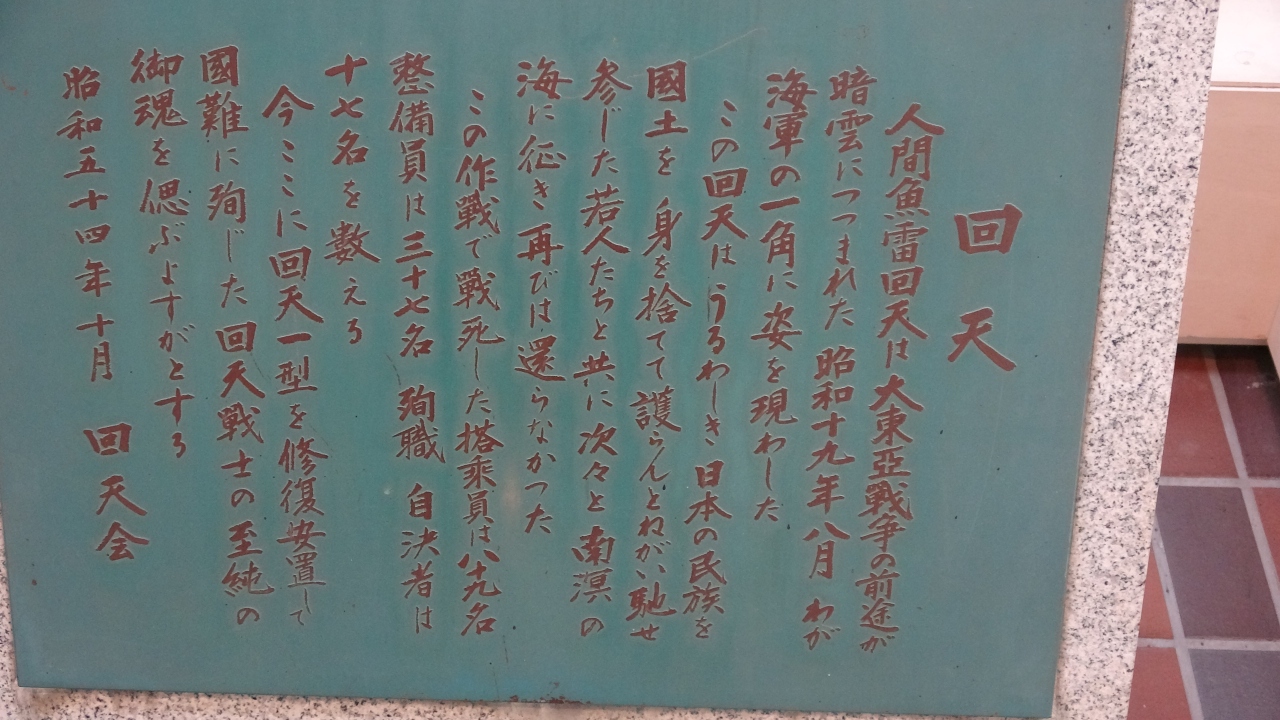 回天
人間魚雷回天は大東亞戦争の前途が
暗雲につつまれた昭和十九年八月 わが
海軍の一角に姿を現わした
この回天は うるわしき 日本の民族を
國土を 身を捨てて護らんとねがい馳せ
参じた若人たちと共に次々と南溟の
海に征き再びは還らなかつた
この作戦で戦死した搭乗員は八十九名
整備員は三十七名 殉職 自決者は
十七名を数える
今ここに回天一型を修復安置して
國難に殉じた回天戦士の至純の
御魂を偲ぶよすがとする
昭和五十四年十月 回天会